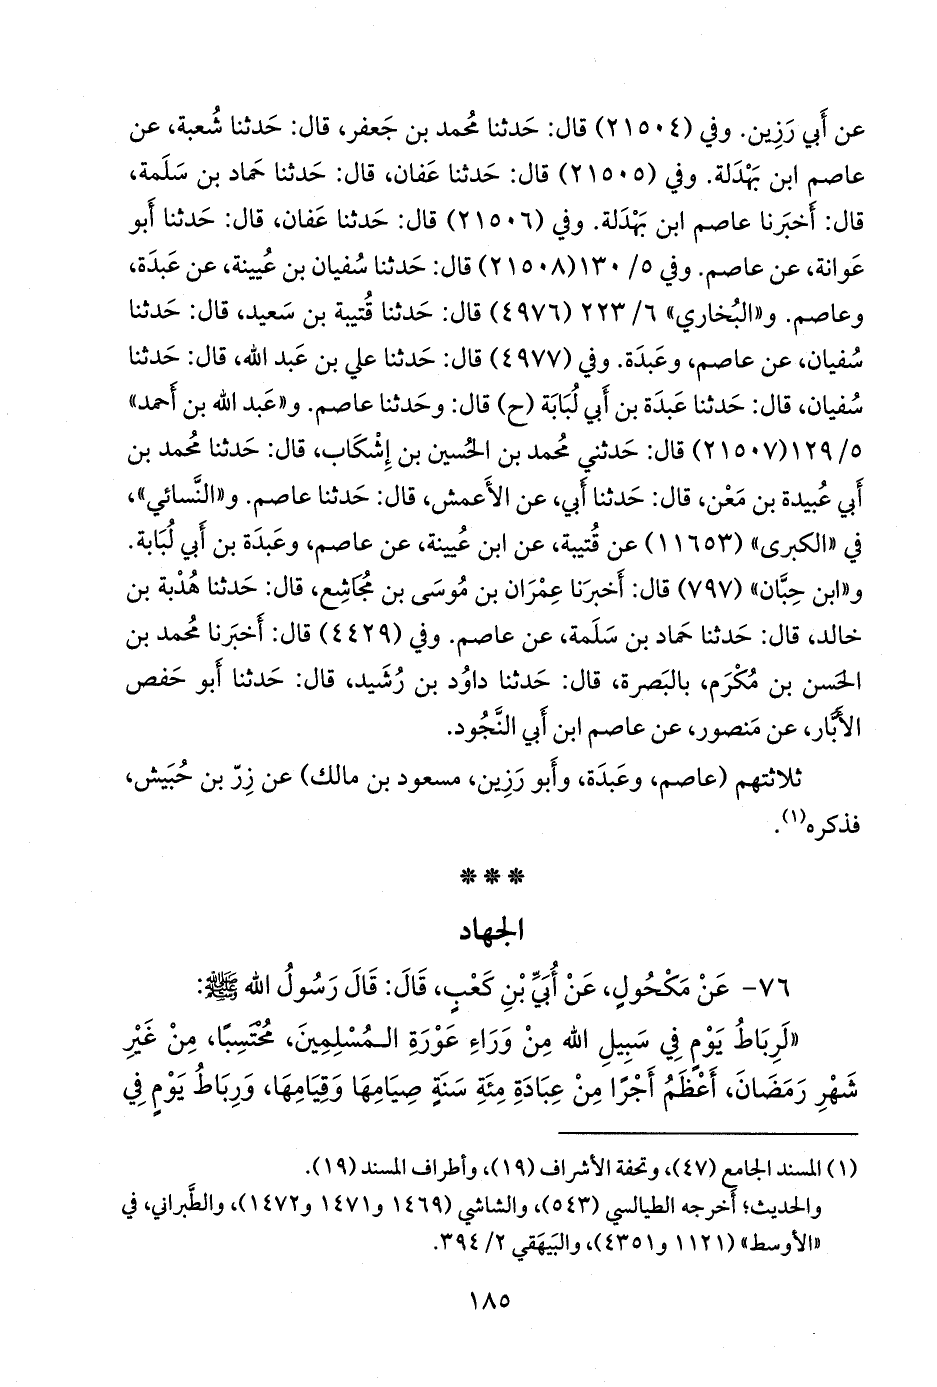 عن أَبي رَزِين. وفي (٢١٥٠٤) قال: حَدثنا مُحمد بن جَعفر، قال: حَدثنا شُعبة، عن
عاصم ابن بَهْدَلة. وفي (٢١٥٠٥) قال: حَدثنا عَفان، قال: حَدثنا حَماد بن سَلَمة،
قال: أَخبَرنا عاصم ابن بَهْدَلة. وفي (٢١٥٠٦) قال: حَدثنا عَفان، قال: حَدثنا أَبو
عَوانة، عن عاصم. وفي ٥/ ١٣٠(٢١٥٠٨) قال: حَدثنا سُفيان بن عُيينة، عن عَبدَة،
وعاصم. و«البُخاري» ٦/ ٢٢٣ (٤٩٧٦) قال: حَدثنا قُتيبة بن سَعيد، قال: حَدثنا
سُفيان، عن عاصم، وعَبدَة. وفي (٤٩٧٧) قال: حَدثنا علي بن عَبد الله، قال: حَدثنا
سُفيان، قال: حَدثنا عَبدَة بن أَبي لُبَابَة (ح) قال: وحَدثنا عاصم. و«عَبد الله بن أَحمد»
٥/ ١٢٩(٢١٥٠٧) قال: حَدثني مُحمد بن الحُسين بن إِشْكاب، قال: حَدثنا مُحمد بن
أَبي عُبيدة بن مَعْن، قال: حَدثنا أَبي، عن الأَعمش، قال: حَدثنا عاصم. و«النَّسائي»،
في «الكبرى» (١١٦٥٣) عن قُتيبة، عن ابن عُيينة، عن عاصم، وعَبدَة بن أَبي لُبَابة.
و«ابن حِبَّان» (٧٩٧) قال: أَخبرَنا عِمْرَان بن مُوسَى بن مُجَاشِع، قال: حَدثنا هُدْبة بن
خالد، قال: حَدثنا حَماد بن سَلَمة، عن عاصم. وفي (٤٤٢٩) قال: أَخبَرنا مُحمد بن
الحَسن بن مُكْرَم، بالبَصرة، قال: حَدثنا داوُد بن رُشَيد، قال: حَدثنا أَبو حَفص
الأَبَّار، عن مَنصور، عن عاصم ابن أَبي النَّجُود.
ثلاثتهم (عاصم، وعَبدَة، وأَبو رَزِين، مسعود بن مالك) عن زِرّ بن حُبَيش،
فذكره(١).
* * *
الجهاد
٧٦- عَنْ مَكْحُولٍ، عَنْ أُبَيِّ بْنِ كَعْبٍ، قَالَ: قَالَ رَسُولُ الله ﷺ:
«لَرِبَاطُ يَوْمٍ فِي سَبِيلِ الله مِنْ وَرَاءِ عَوْرَةِ الـمُسْلِمِينَ، مُحْتَسِبًا، مِنْ غَيْرِ
شَهْرِ رَمَضَانَ، أَعْظَمُ أَجْرًا مِنْ عِبَادَةِ مِئَةِ سَنَةٍ صِيَامِهَا وَقِيَامِهَا، وَرِبَاطُ يَوْمٍ فِي
(١) المسند الجامع (٤٧)، وتحفة الأشراف (١٩)، وأطراف المسند (١٩).
والحديث؛ أخرجه الطيالسي (٥٤٣)، والشاشي (١٤٦٩ و١٤٧١ و١٤٧٢)، والطَّبراني، في
«الأوسط» (١١٢١ و٤٣٥١)، والبَيهَقي ٢/ ٣٩٤.
١٨٥